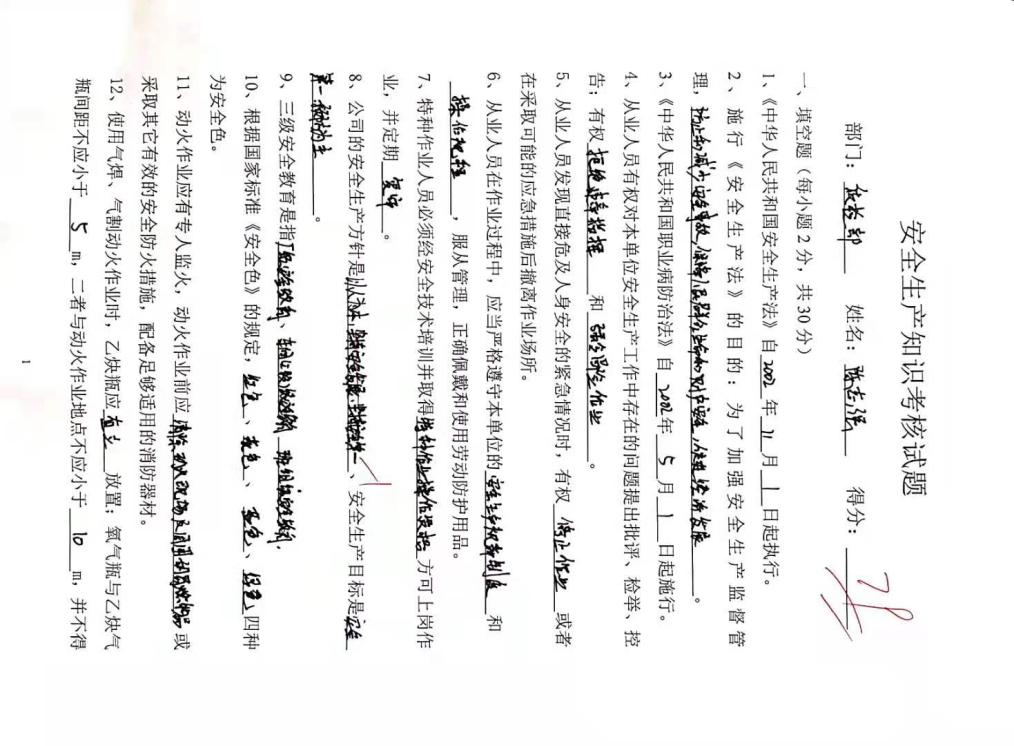 安全生产知识考核试题
部门：技检部 姓名：陈志强 得分：
一、填空题（每小题2分，共30分）
1、《中华人民共和国安全生产法》自2002年11月1日起执行。
2、施行《安全生产法》的目的：为了加强安全生产监督管
理，防止和减少安全事故，保障人民群众生命和财产安全，促进经济发展。
3、《中华人民共和国职业病防治法》自2002年5月1日起施行。
4、从业人员有权对本单位安全生产工作中存在的问题提出批评、检举、控
告；有权拒绝违章指挥和强令冒险作业。
5、从业人员发现直接危及人身安全的紧急情况时，有权停止作业或者
在采取可能的应急措施后撤离作业场所。
6、从业人员在作业过程中，应当严格遵守本单位的安全生产规章制度和
操作规程，服从管理，正确佩戴和使用劳动防护用品。
7、特种作业人员必须经安全技术培训并取得特种作业操作资格方可上岗作
业，并定期复审。
8、公司的安全生产方针是以人为本、、安全生产目标是安全
第一预防为主。
9、三级安全教育是指厂级安全教育、车间级安全教育、班组级安全教育。
10、根据国家标准《安全色》的规定，红色、黄色、蓝色、绿色、四种
为安全色。
11、动火作业应有专人监火，动火作业前应清除动火现场及周围的易燃物品或
采取其它有效的安全防火措施，配备足够适用的消防器材。
12、使用气焊、气割动火作业时，乙炔瓶应直立放置；氧气瓶与乙炔气
瓶间距不应小于5m，二者与动火作业地点不应小于10m，并不得
1